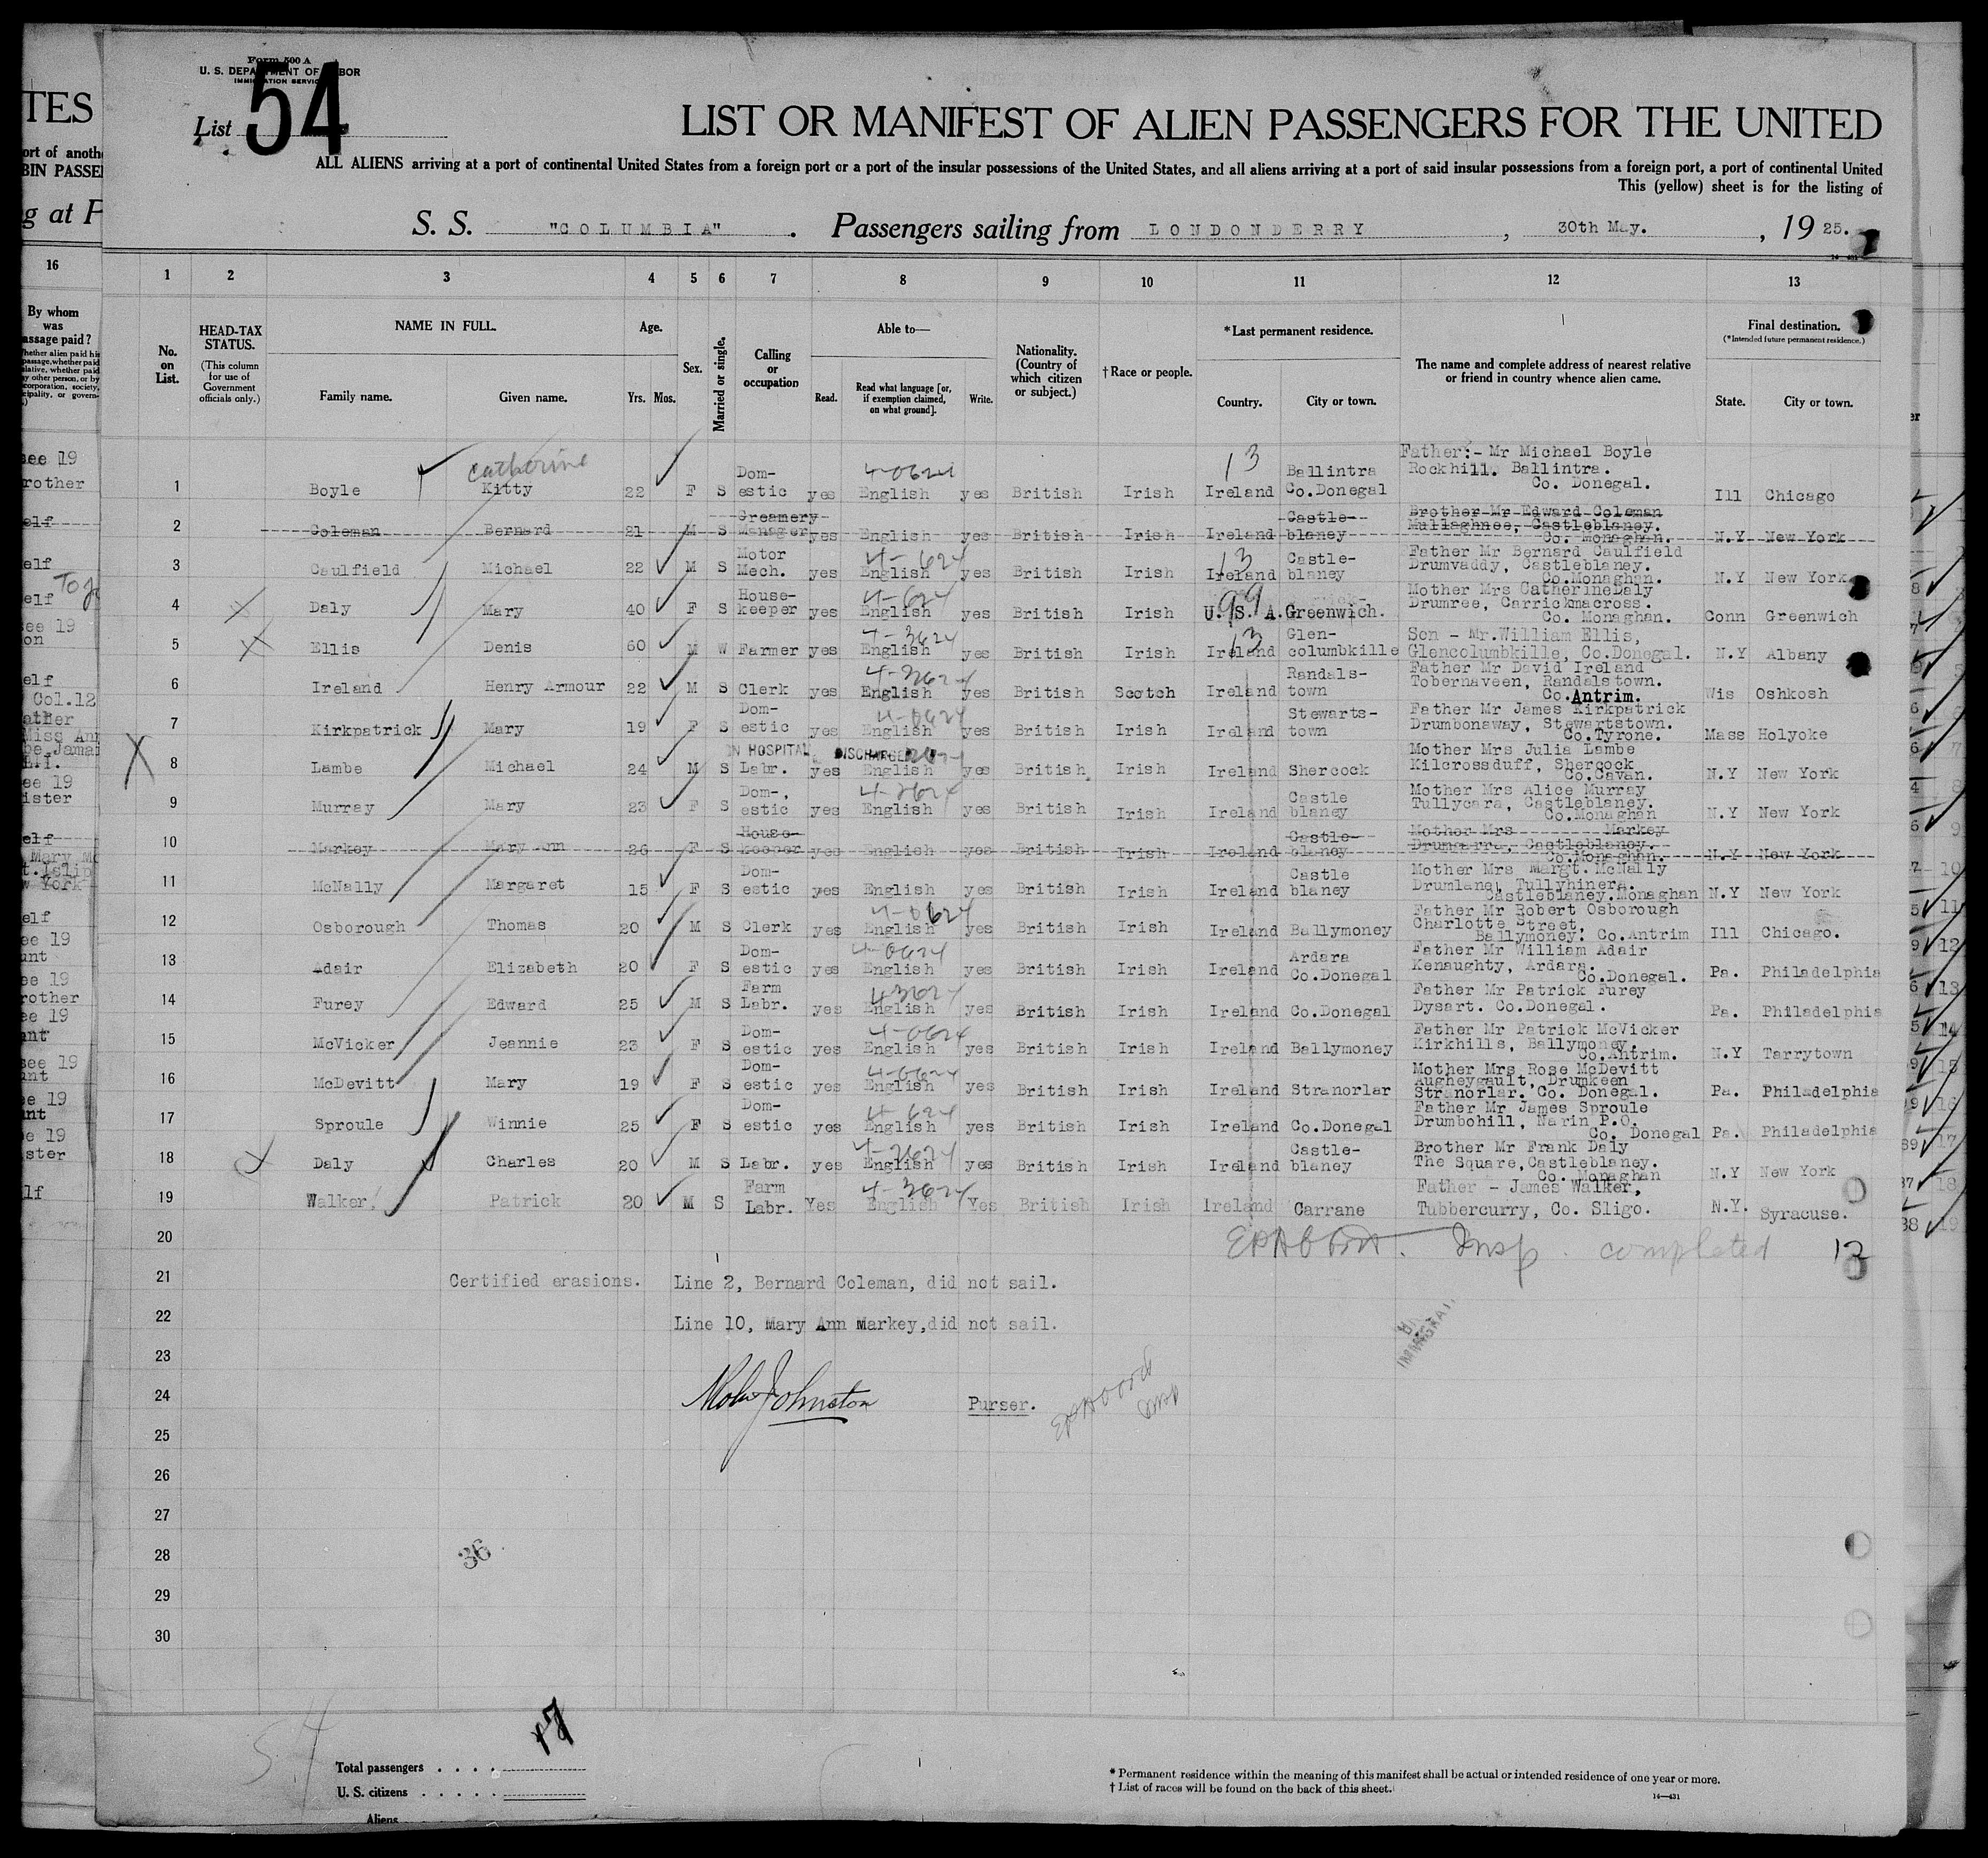 Form 500 A
U. S. DEPARTMENT OF LABOR
IMMIGRATION SERVICE
List 54
LIST OR MANIFEST OF ALIEN PASSENGERS FOR THE UNITED
ALL ALIENS arriving at a port of continental United States from a foreign port or a port of the insular possessions of the United States, and all aliens arriving at a port of said insular possessions from a foreign port, a port of continental United
This (yellow) sheet is for the listing of
S. S. "COLUMBIA". Passengers sailing from LONDONDERRY, 30th May., 1925.
1 2 3 4 5 6 7 8 9 10 11 12 13
No. on List.
HEAD-TAX STATUS.
(This column for use of Government officials only.)
NAME IN FULL.
Family name. Given name.
Age.
Yrs. Mos.
Sex.
Married or single.
Calling or occupation
Able to—
Read. Read what language [or, if exemption claimed, on what ground]. Write.
Nationality. (Country of which citizen or subject.)
†Race or people.
*Last permanent residence.
Country. City or town.
The name and complete address of nearest relative or friend in country whence alien came.
Final destination.
(*Intended future permanent residence.)
State. City or town.
1 Boyle Catherine Kitty 22 F S Dom-estic yes English yes British Irish Ireland Ballintra Co.Donegal Father:- Mr Michael Boyle Rockhill. Ballintra. Co. Donegal. Ill Chicago
2 Coleman Bernard 21 M S Creamery Manager yes English yes British Irish Ireland Castle-blaney Brother Mr Edward Coleman Mullaghnee, Castleblaney. Co. Monaghan. N.Y New York
3 Caulfield Michael 22 M S Motor Mech. yes English yes British Irish Ireland Castle-blaney Father Mr Bernard Caulfield Drumvaddy, Castleblaney. Co.Monaghan. N.Y New York
4 Daly Mary 40 F S House-keeper yes English yes British Irish U.S.A. Greenwich. Mother Mrs CatherineDaly Drumree, Carrickmacross. Co. Monaghan. Conn Greenwich
5 Ellis Denis 60 M W Farmer yes English yes British Irish Ireland Glen-columbkille Son - Mr.William Ellis, Glencolumbkille, Co.Donegal. N.Y Albany
6 Ireland Henry Armour 22 M S Clerk yes English yes British Scotch Ireland Randals-town Father Mr David Ireland Tobernaveen, Randalstown. Co.Antrim. Wis Oshkosh
7 Kirkpatrick Mary 19 F S Dom-estic yes English yes British Irish Ireland Stewarts-town Father Mr James Kirkpatrick Drumbonaway, Stewartstown. Co.Tyrone. Mass Holyoke
IN HOSPITAL DISCHARGED
8 Lambe Michael 24 M S Labr. yes English yes British Irish Ireland Shercock Mother Mrs Julia Lambe Kilcrossduff, Shercock Co.Cavan. N.Y New York
9 Murray Mary 23 F S Dom-estic yes English yes British Irish Ireland Castle blaney Mother Mrs Alice Murray Tullycara, Castleblaney. Co.Monaghan N.Y New York
10 Markey Mary Ann 26 F S House-keeper yes English yes British Irish Ireland Castle-blaney Mother Mrs Markey Drumgarra, Castleblaney. Co.Monaghan. N.Y New York
11 McNally Margaret 15 F S Dom-estic yes English yes British Irish Ireland Castle blaney Mother Mrs Margt. McNally Drumlane, Tullyhinera. Castleblaney.Monaghan N.Y New York
12 Osborough Thomas 20 M S Clerk yes English yes British Irish Ireland Ballymoney Father Mr Robert Osborough Charlotte Street, Ballymoney. Co.Antrim Ill Chicago.
13 Adair Elizabeth 20 F S Dom-estic yes English yes British Irish Ireland Ardara Co.Donegal Father Mr William Adair Kenaughty, Ardara. Co.Donegal. Pa. Philadelphia
14 Furey Edward 25 M S Farm Labr. yes English yes British Irish Ireland Co.Donegal Father Mr Patrick Furey Dysart. Co.Donegal. Pa. Philadelphia
15 McVicker Jeannie 23 F S Dom-estic yes English yes British Irish Ireland Ballymoney Father Mr Patrick McVicker Kirkhills, Ballymoney. Co.Antrim. N.Y Tarrytown
16 McDevitt Mary 19 F S Dom-estic yes English yes British Irish Ireland Stranorlar Mother Mrs Rose McDevitt Augheygault, Drumkeen Stranorlar. Co. Donegal. Pa. Philadelphia
17 Sproule Winnie 25 F S Dom-estic yes English yes British Irish Ireland Co.Donegal Father Mr James Sproule Drumbohill, Narin P.O. Co. Donegal Pa. Philadelphia
18 Daly Charles 20 M S Labr. yes English yes British Irish Ireland Castle-blaney Brother Mr Frank Daly The Square,Castleblaney. Co. Monaghan N.Y New York
19 Walker Patrick 20 M S Farm Labr. Yes English Yes British Irish Ireland Carrane Father - James Walker, Tubbercurry, Co. Sligo. N.Y. Syracuse.
20 Insp. completed 12
21 Certified erasions. Line 2, Bernard Coleman, did not sail.
22 Line 10, Mary Ann Markey,did not sail.
23
24 Johnston Purser.
25
26
27
28 36
29
30
17
54
Total passengers
U. S. citizens
Aliens
* Permanent residence within the meaning of this manifest shall be actual or intended residence of one year or more.
† List of races will be found on the back of this sheet.
14—431